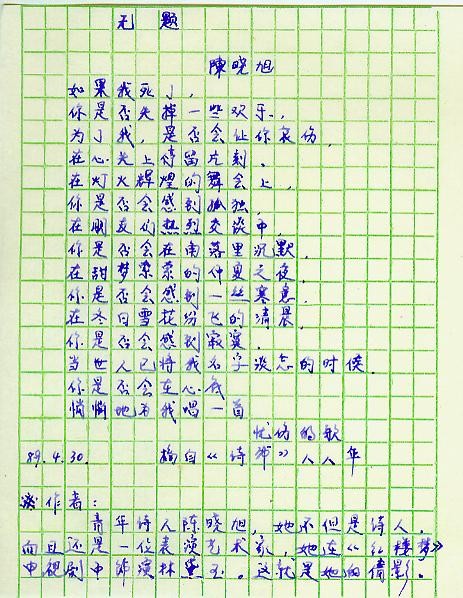 无题
陳晓旭
如果我死了，
你是否失掉一些欢乐，
为了我，是否会让你哀伤
在心尖上停留片刻。
在灯火辉煌的舞会上，
你是否会感到孤独，
在朋友们热烈交谈中，
你是否会在角落里沉默，
在甜梦柔柔的仲夏之夜，
你是否会感到一丝寒意
在冬日雪花纷飞的清晨，
你是否会感到寂寞。
当世人已将我名字淡忘的时候，
你是否会在心底
悄悄地为我唱一首
忧伤的歌
89.4.30. 摘自《诗 》人人年
作者：
青年诗人陈晓旭，她不但是诗人，
而且还是一位表演艺术家，她在《红楼梦》
电视剧中饰演林黛玉。这就是她的倩影。